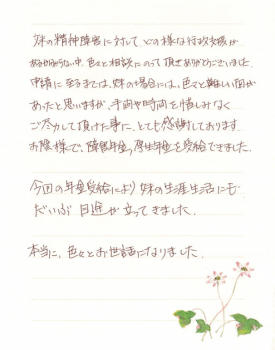 妹の精神障害に対して どの様な行政支援が
あるかわからない中、色々と相談にのって頂きありがとございました。
申請に至るまでは、妹の場合には、色々と難しい面が
あったと思いますが、手間や時間を惜しみなく
ご尽力して頂けた事に、とても感謝しております
お陰様で、障害年金、厚生年金を受給できました。
今回の年金受給により 妹の生涯生活にも
だいぶ 目途が立ってきました.
本当に、色々とお世話になりました.